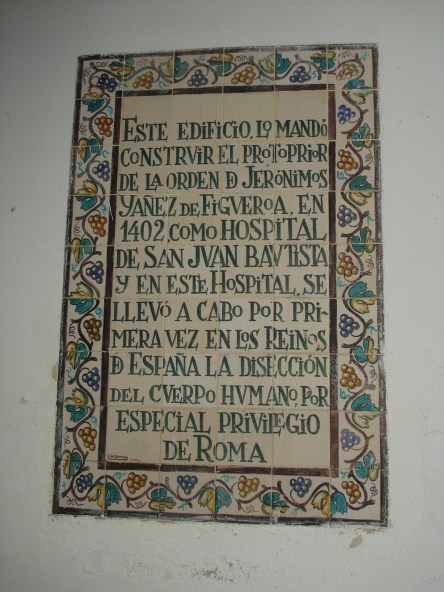 ESTE EDIFICIO, LO MANDÓ
CONSTRVIR EL PROTOPRIOR
DE LA ORDEN D JERÓNIMOS
YAÑEZ DE FIGVEROA, EN
1402, COMO HOSPITAL
DE SAN JVAN BAVTISTA
Y EN ESTE HOSPITAL, SE
LLEVÓ A CABO POR PRI-
MERA VEZ EN LOS REINOS
D ESPAÑA LA DISECCIÓN
DEL CVERPO HVMANO, POR
ESPECIAL PRIVILEGIO
DE ROMA